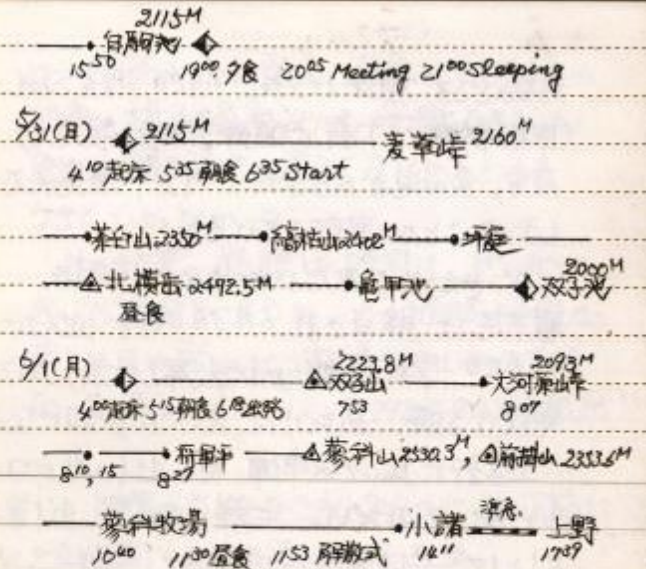 2115M
白駒池
15 50 19 00 夕食 20 05 Meeting 21 00 Sleeping
5/31(日) 2115M 麦草峠 2160M
4 10 起床 5 35 朝食 6 35 Start
茶臼山 2350M 縞枯山 2402M 坪庭
北横岳 2492.5M 亀甲池 双子池 2000M
昼食
6/1(月) 双子山 2223.8M 大河原峠 2093M
4 00 起床 5 15 朝食 6 18 出発 7 53 8 07
将軍平 蓼科山 2530.3M, 前掛山 2353.6M
8 10, 15 8 27
蓼科牧場 小諸 上野
10 40 11 30 昼食 11 53 解散式 14 11 17 39